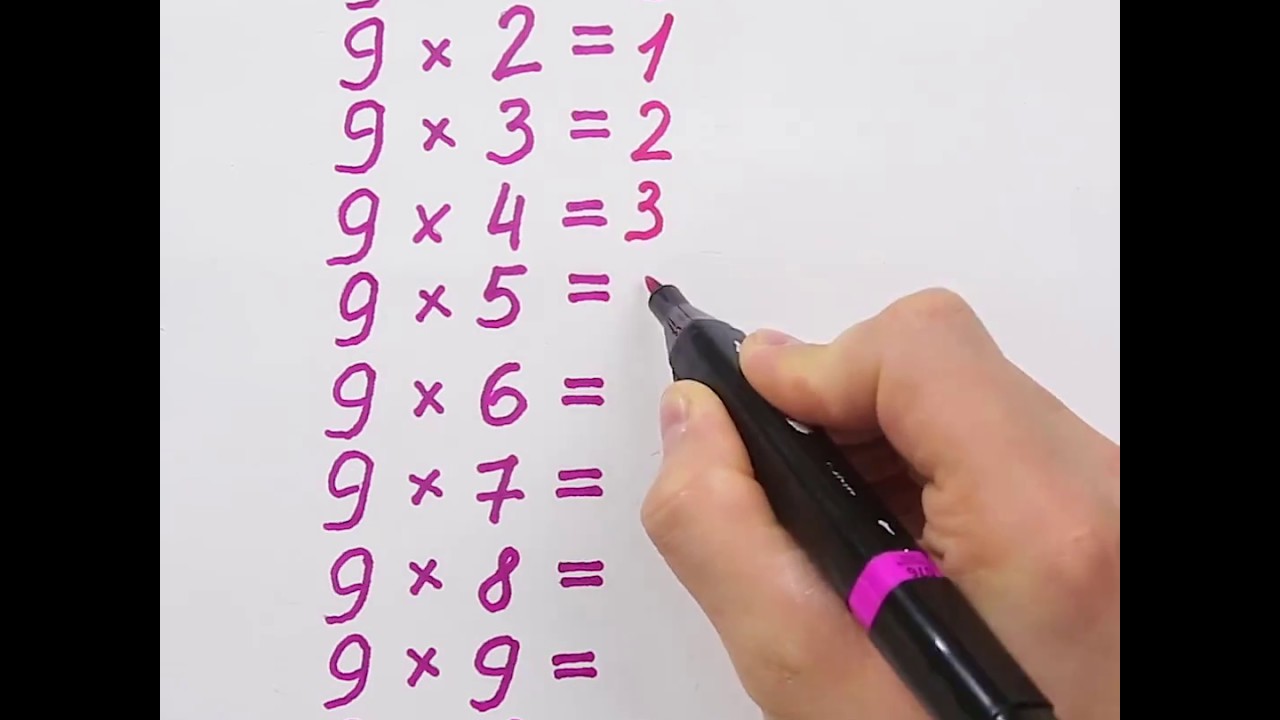 9 × 2 = 1
9 × 3 = 2
9 × 4 = 3
9 × 5 =
9 × 6 =
9 × 7 =
9 × 8 =
9 × 9 =